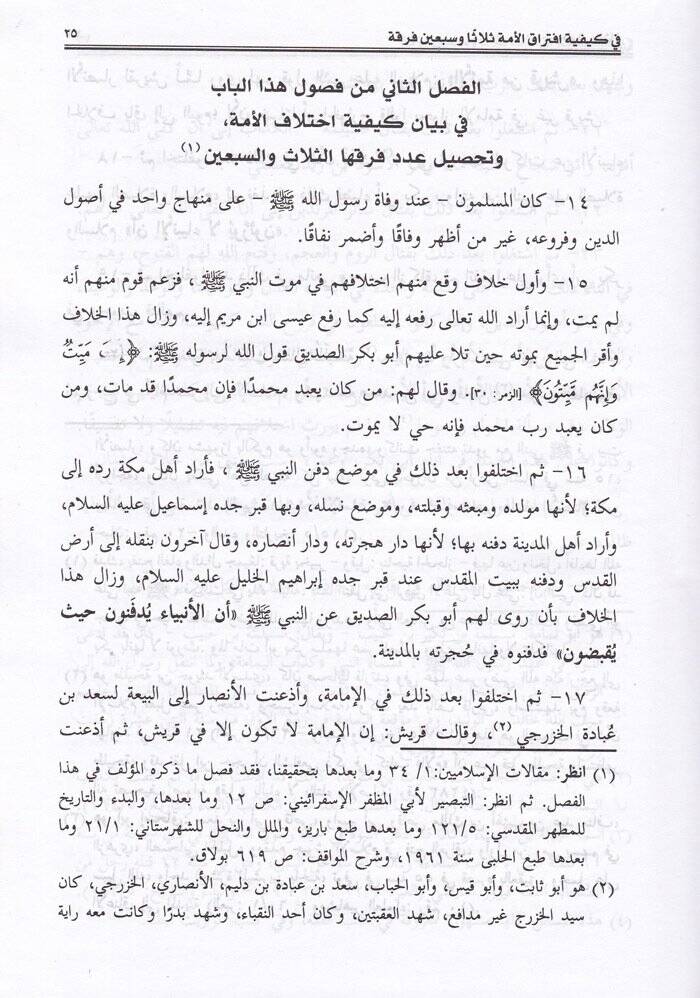 في كيفية افتراق الأمة ثلاثا وسبعين فرقة
٢٥
الفصل الثاني من فصول هذا الباب
في بيان كيفية اختلاف الأمة،
وتحصيل عدد فرقها الثلاث والسبعين (١)
١٤- كان المسلمون - عند وفاة رسول الله ﷺ - على منهاج واحد في أصول
الدين وفروعه، غير من أظهر وفاقًا وأضمر نفاقًا.
١٥- وأول خلاف وقع منهم اختلافهم في موت النبي ﷺ ، فزعم قوم منهم أنه
لم يمت، وإنما أراد الله تعالى رفعه إليه كما رفع عيسى ابن مريم إليه، وزال هذا الخلاف
وأقر الجميع بموته حين تلا عليهم أبو بكر الصديق قول الله لرسوله ﷺ: ﴿إِنَّكَ مَيِّتٌ
وَإِنَّهُم مَّيِّتُونَ﴾ [الزمر: ٣٠]. وقال لهم: من كان يعبد محمدًا فإن محمدًا قد مات، ومن
كان يعبد رب محمد فإنه حي لا يموت.
١٦- ثم اختلفوا بعد ذلك في موضع دفن النبي ﷺ ، فأراد أهل مكة رده إلى
مكة؛ لأنها مولده ومبعثه وقبلته، وموضع نسله، وبها قبر جده إسماعيل عليه السلام،
وأراد أهل المدينة دفنه بها؛ لأنها دار هجرته، ودار أنصاره، وقال آخرون بنقله إلى أرض
القدس ودفنه ببيت المقدس عند قبر جده إبراهيم الخليل عليه السلام، وزال هذا
الخلاف بأن روى لهم أبو بكر الصديق عن النبي ﷺ «أن الأنبياء يُدفَنون حيث
يُقبضون» فدفنوه في حُجرته بالمدينة.
١٧- ثم اختلفوا بعد ذلك في الإمامة، وأذعنت الأنصار إلى البيعة لسعد بن
عُبادة الخزرجي (٢)، وقالت قريش: إن الإمامة لا تكون إلا في قريش، ثم أذعنت
(١) انظر: مقالات الإسلاميين:١/ ٣٤ وما بعدها بتحقيقنا، فقد فصل ما ذكره المؤلف في هذا
الفصل. ثم انظر: التبصير لأبي المظفر الإسفرائيني: ص ١٢ وما بعدها، والبدء والتاريخ
للمطهر المقدسي: ١٢١/٥ وما بعدها طبع باريز، والملل والنحل للشهرستاني: ٢١/١ وما
بعدها طبع الحلبى سنة ١٩٦١، وشرح المواقف: ص ٦١٩ بولاق.
(٢) هو أبو ثابت، وأبو قيس، وأبو الحباب، سعد بن عبادة بن دليم، الأنصاري، الخزرجي، كان
سيد الخزرج غير مدافع، شهد العقبتين، وكان أحد النقباء، وشهد بدرًا وكانت معه راية